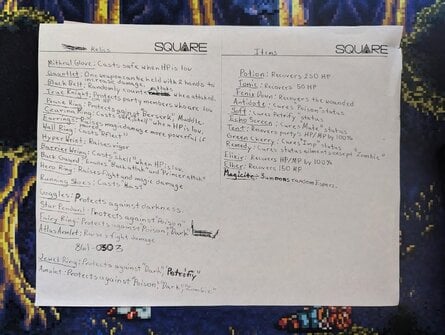 Relics
SQUARE
Mithril Glove: Casts safe when HP is low
Gauntlet: One weapon can be held with 2 hands to
increase damage.
Black Belt: Randomly counter when attacked.
True Knight: Protects party members who are low
on HP.
Brave Ring: Protects against "Berserk", Muddle.
Earrings: Raises magic damage
Wall Ring: Casts "Reflect"
Hyper Wrist: Raises vigor
Barrier Ring: Casts "Shell" when HP is low
Back Guard: Prevents "Back attack" and "Pincer attack"
Hero Ring: Raises fight and magic damage
Running Shoes: Casts "Haste"
Goggles: Protects against darkness.
Star Pendant: Protects against "Poison"
Fairy Ring: Protects against "Poison", "Dark"
Atlas Armlet: Raises fight damage
861-0303
Jewel Ring: Protects against "Dark", "Petrify"
Amulet: Protects against "Poison", "Dark", "Zombie"
Items
SQUARE
Potion: Recovers 250 HP
Tonic: Recovers 50 HP
Fenix Down: Recovers the wounded
Antidote: cures "Poison" status
Soft: Cures "Petrify" status
Echo Screen: Cures "Mute" status
Tent: Recovers party's HP/MP by 100%
Green Cherry: Cures "Imp" status
"Zombie"
Remedy: Cures status ailments except "Zombie"
Elixir: Recovers HP/MP by 100%
Elixir: Recovers 150 HP
Magicite: Summons random Espers.